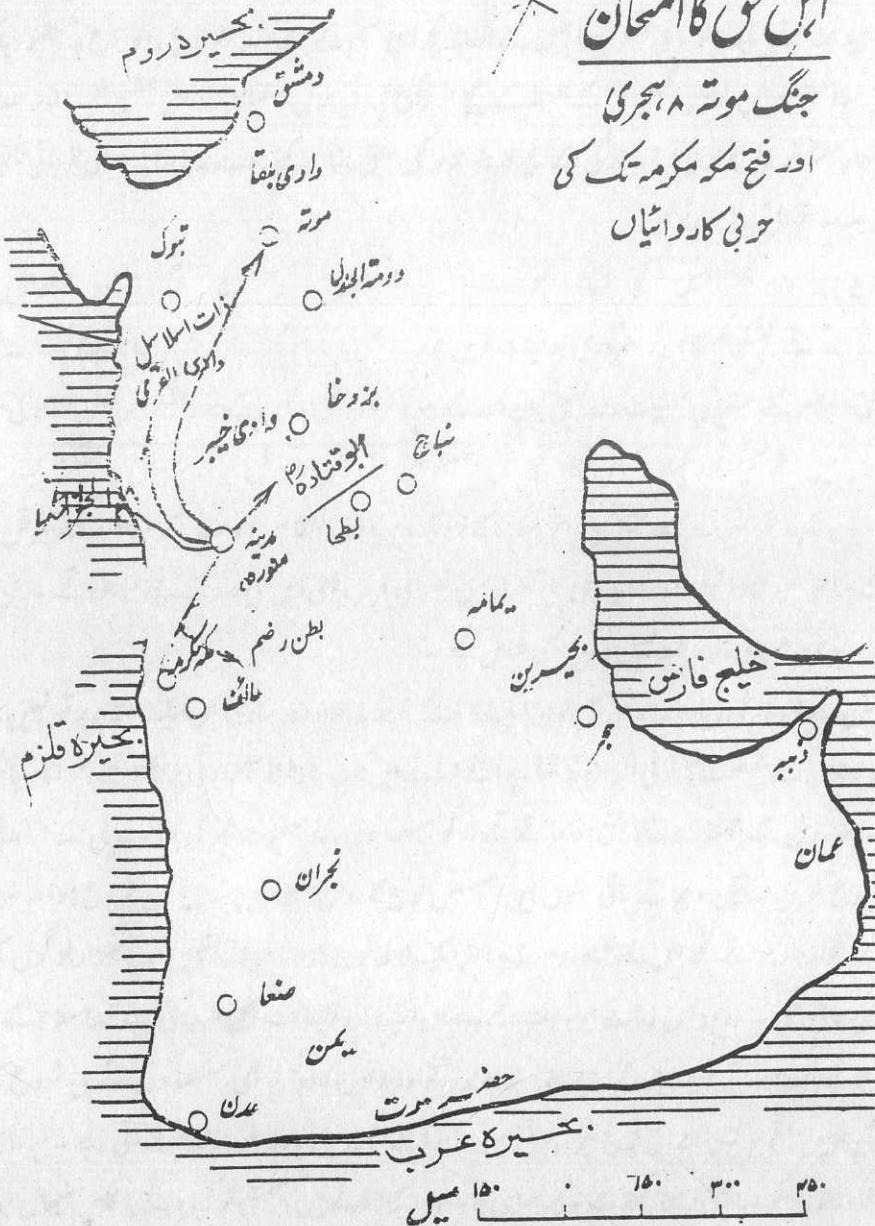 اہل حق کا امتحان
جنگ موتہ ۸ ہجری
اور فتح مکہ مکرمہ تک کی
حربی کاروائیاں
بحیرہ روم
دمشق
وادی بلقا
موتہ
تبوک
دومتہ الجندل
ذات اسلاسل
وادی القریٰ
بزوخا
وادی خیبر
ابو قتادہؓ
نباج
بطحا
مدینہ
منورہ
یمامہ
بطن رضم
مکہ مکرمہ
طائف
بحیرہ قلزم
بحیرین
خلیج فارس
ہجر
عمان
نجران
صنعا
یمن
حضر موت
عدن
بحیرہ عرب
میل ۱۵۰ ۰ ۱۵۰ ۳۰۰ ۴۵۰